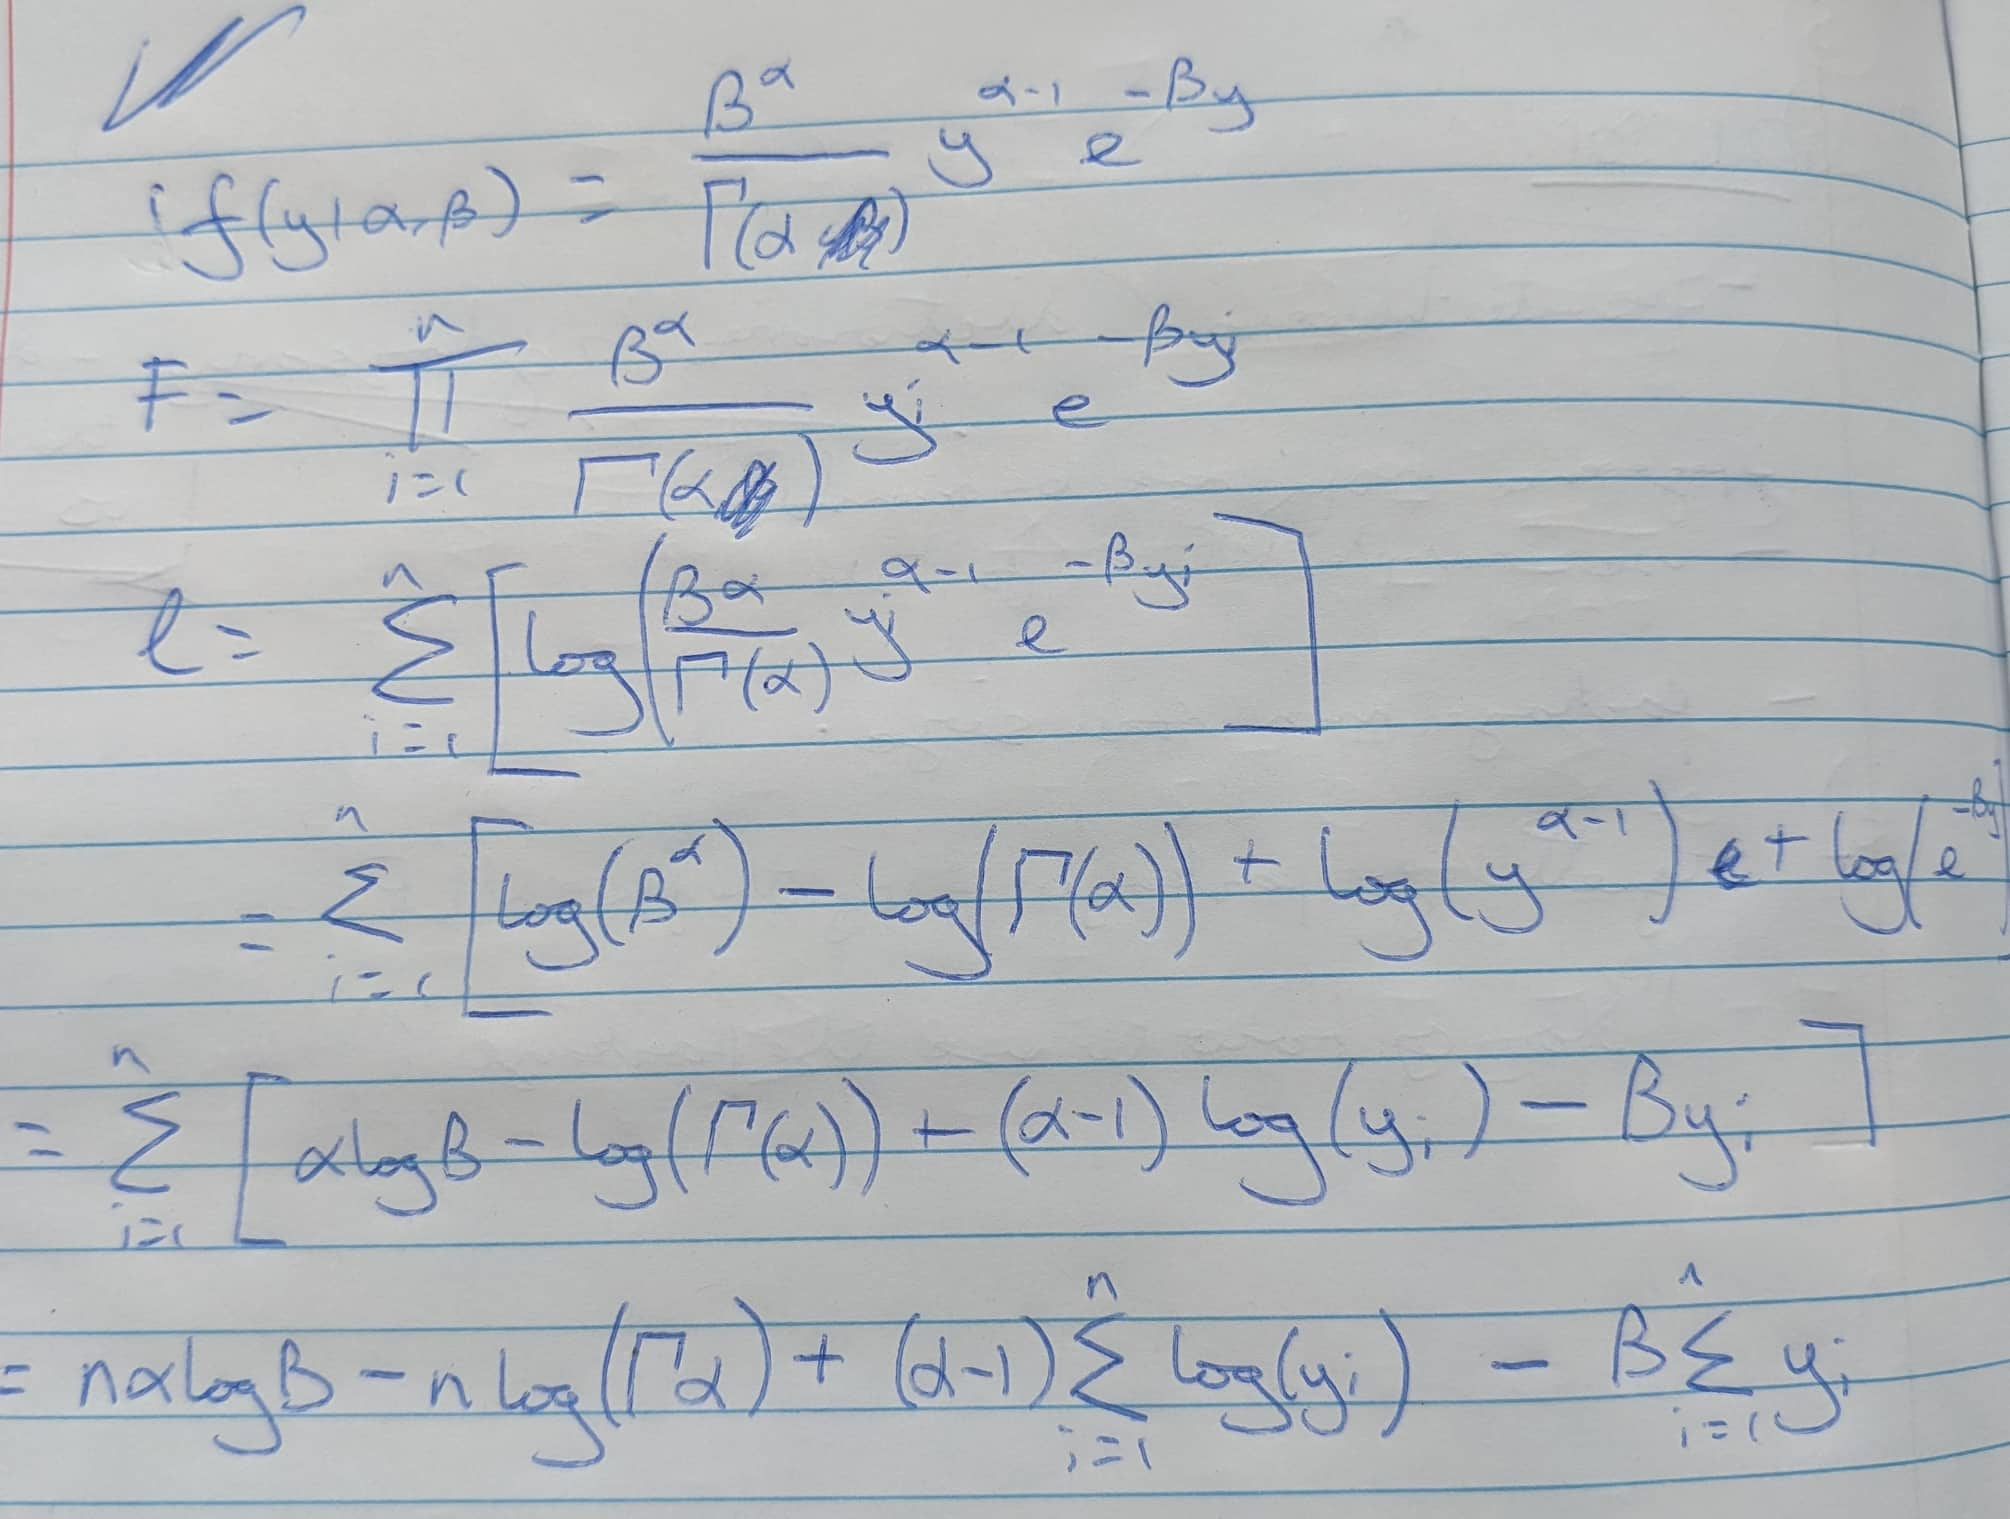 if(y|α,β) = β^α / Γ(α) y^(α-1) e^(-βy)
F = ∏_{i=1}^{n} β^α / Γ(α) y_i^(α-1) e^(-βy_i)
l = Σ_{i=1}^{n} [log(β^α / Γ(α) y_i^(α-1) e^(-βy_i)]
= Σ_{i=1}^{n} [log(β^α) - log(Γ(α)) + log(y^(α-1)) + log(e^(-βy)
= Σ_{i=1}^{n} [αlogβ - log(Γ(α)) + (α-1) log(y_i) - βy_i]
= nαlogβ - nlog(Γα) + (α-1) Σ_{i=1}^{n} log(y_i) - β Σ_{i=1}^{n} y_i